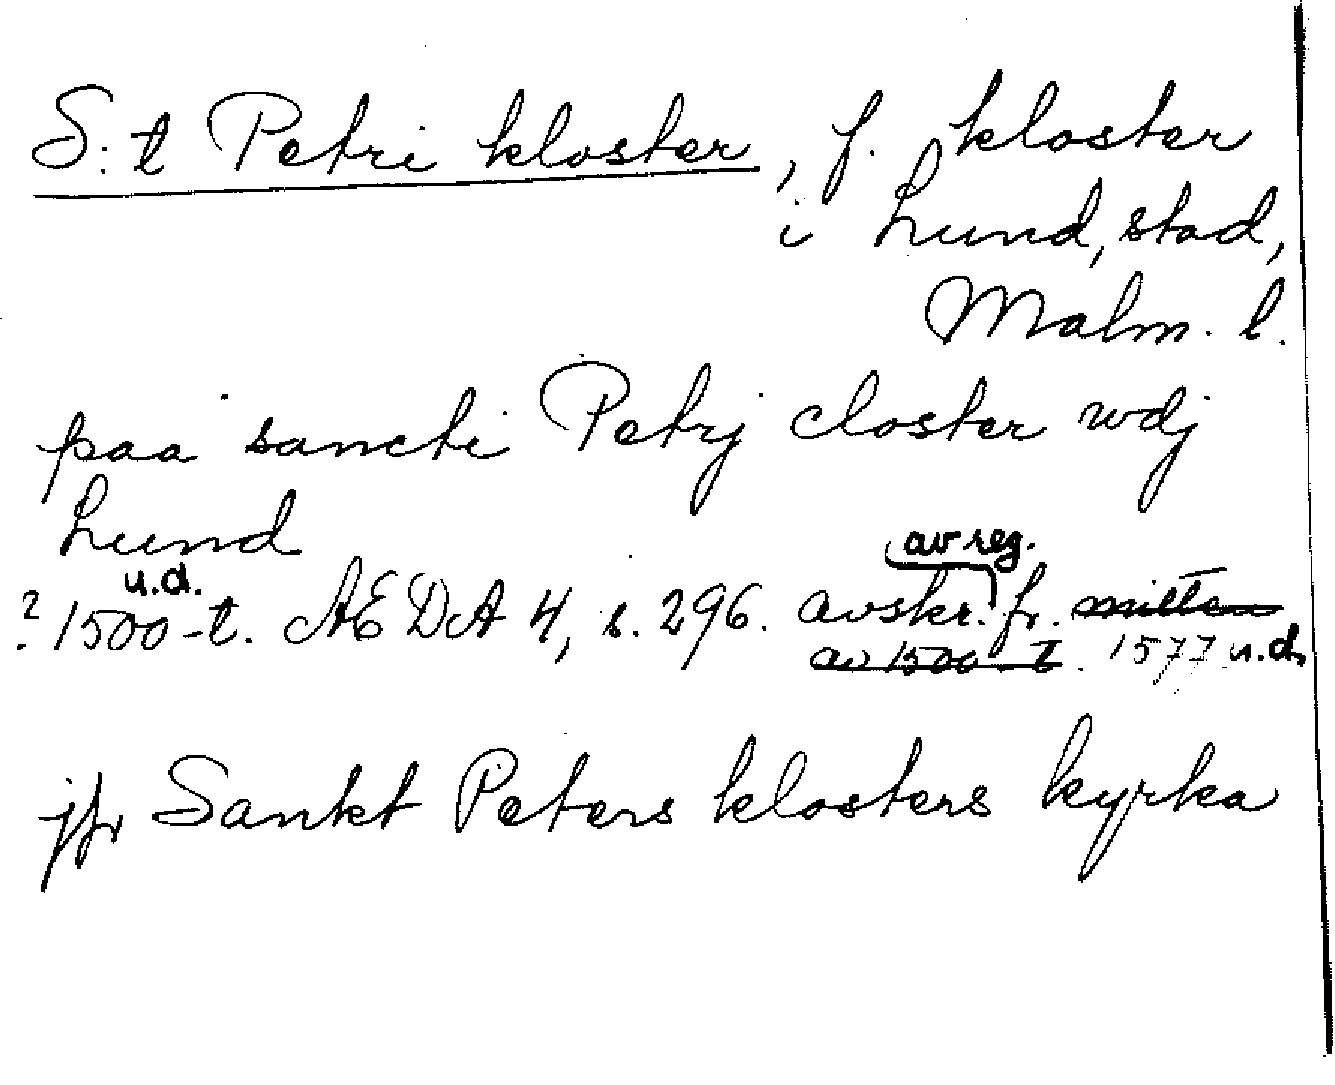 S:t Petri kloster, f. kloster
i Lund, stad,
Malm. l.
paa sancti Petrj closter wdj
Lund
av reg.
u.d.
? 1500-t. AEDA 4, s. 296. avskr. fr. mitten
av 1500-t. 1577 u.d.
jfr Sankt Peters klosters kyrka